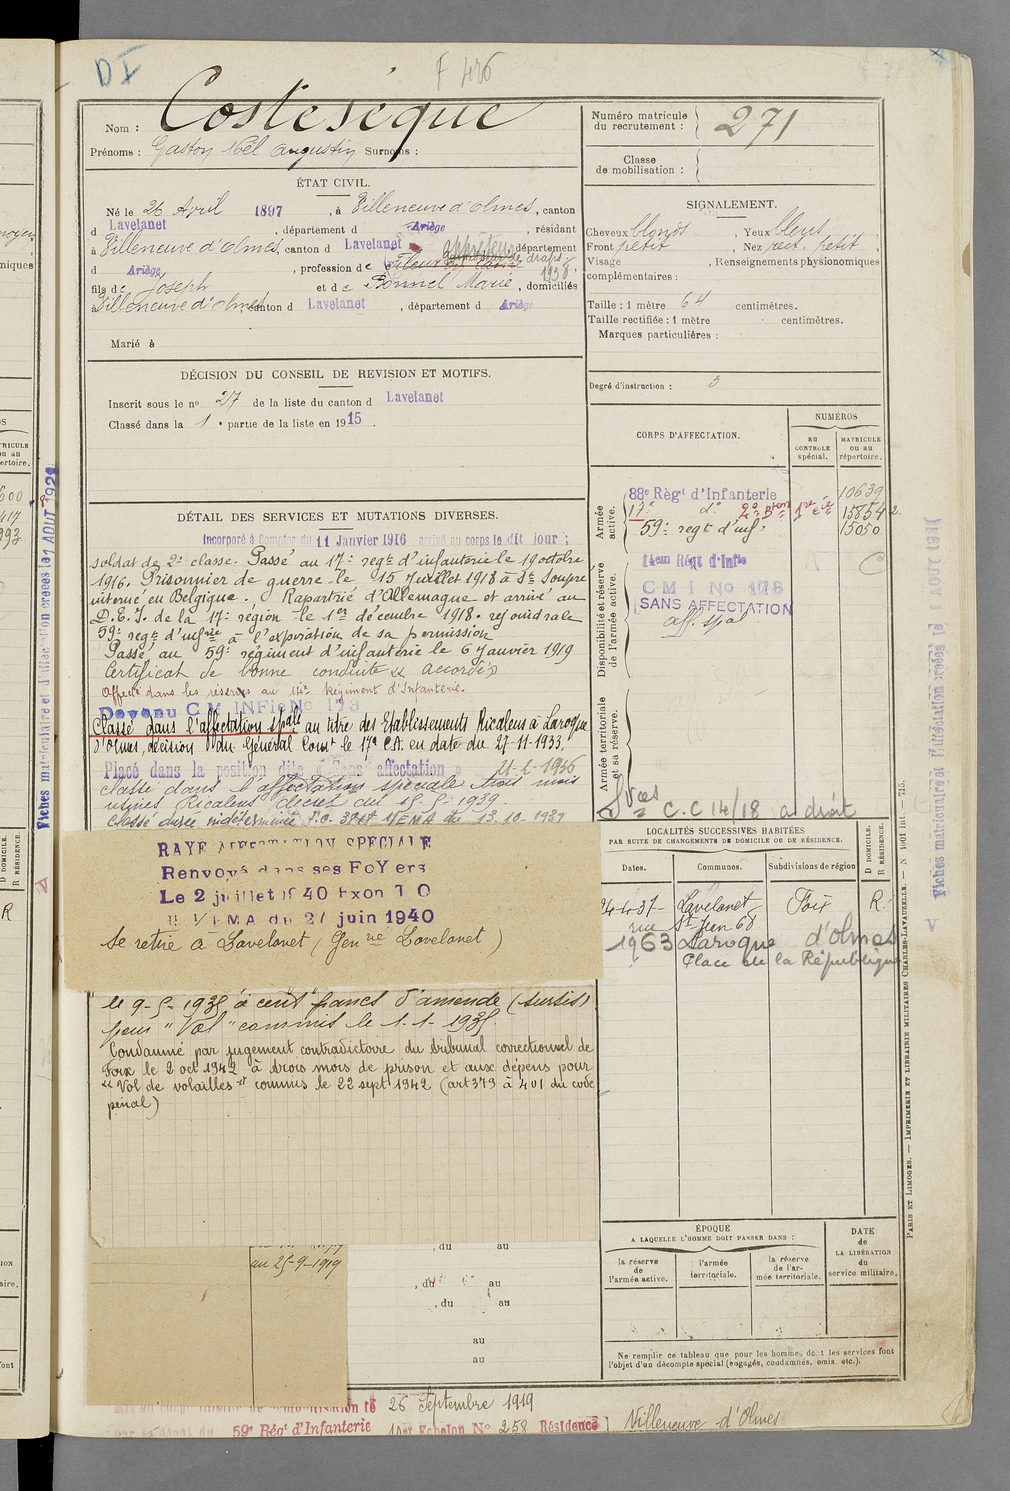 D I
F 426
Nom : Costesèque
Prénoms : Gaston Noël Augustin Surnoms :
Numéro matricule du recrutement : 271
Classe de mobilisation :
ÉTAT CIVIL.
Né le 26 Avril 1897, à Villeneuve d'olmes, canton
d Lavelanet, département d Ariège, résidant
à Villeneuve d'olmes, canton d Lavelanet département
d Ariège, profession de
1938
fils de Joseph et de Bonnel Marie, domiciliés
à Villeneuve d'olmes, canton d Lavelanet, département d Ariège
Marié à
SIGNALEMENT.
Cheveux blonds, Yeux bleus
Front petit, Nez rect. petit,
Visage , Renseignements physionomiques
complémentaires :
Taille : 1 mètre 64 centimètres.
Taille rectifiée : 1 mètre centimètres.
Marques particulières :
Degré d'instruction : 3
DÉCISION DU CONSEIL DE REVISION ET MOTIFS.
Inscrit sous le no 27 de la liste du canton d Lavelanet
Classé dans la 1e partie de la liste en 1915.
CORPS D'AFFECTATION.
NUMÉROS
au CONTROLE spécial.
MATRICULE ou au répertoire.
Armée active.
88e Règt d'Infanterie 10639
17e do 20e Bton 1re Cie 15854
59e regt d'inf. 15050
Disponibilité et réserve de l'armée active.
14em Régt d'Infie C
C M I No 178
SANS AFFECTATION
aff. spal
Armée territoriale et sa réserve.
Svces C.C 14/18 a droit
DÉTAIL DES SERVICES ET MUTATIONS DIVERSES.
Incorporé à Compter du 11 Janvier 1916 arrivé au corps le dit jour ;
soldat de 2e classe. Passé au 17e regt d'infanterie le 19 octobre
1916. Prisonnier de guerre le 15 Juillet 1918 à Ste Soupre
interné en Belgique. Rapatrié d'Allemagne et arrivé au
D.E.I. de la 17e région le 1er décembre 1918. rejoindra le
59e regt d'infrie à l'expiration de sa permission
Passé au 59e régiment d'infanterie le 6 Janvier 1919
Certificat de bonne conduite « Accordé »
Affecté dans les réserves au 14e Régiment d'Infanterie.
Devenu C M INFie No 178
Classé dans l'affectation spale au titre des Etablissements Ricalens à Laroque
d'Olmes, décision du Général Comt le 17e C.A. en date du 27-11-1933.
Placé dans la position dite « Sans affectation »
classé dans l'affectation spéciale trois mois
usines Ricalens décret du
Classé durée indéterminée 13.10.1939
RAYÉ AFFECTATION SPECIALE
Renvoyé dans ses FoYers
Le 2 juillet 1940 Exon T O
1/EMA du 27 juin 1940
se retire à Lavelanet (Genrie Lavelanet)
le 9-5-1935 à cent francs d'amende (sursis)
pour "Vol" commis le 1-1-1935.
Condamné par jugement contradictoire du tribunal correctionnel de
Foix le 2 oct 1942 à trois mois de prison et aux dépens pour
« Vol de volailles » commis le 22 sept 1942 (art 379 à 401 du code
pénal)
LOCALITÉS SUCCESSIVES HABITÉES
PAR SUITE DE CHANGEMENTS DE DOMICILE OU DE RÉSIDENCE.
Dates. Communes. Subdivisions de région D DOMICILE. R RÉSIDENCE.
24-4-37- Lavelanet Foix R.
rue St Jean 68
1963 Laroque d'olmes
Place de la République
ÉPOQUE
A LAQUELLE L'HOMME DOIT PASSER DANS :
la réserve de l'armée active.
l'armée territoriale.
la réserve de l'armée territoriale.
DATE de LA LIBÉRATION du service militaire.
au 25-9-1919
, du au
, du au
, du au
au
au
Ne remplir ce tableau que pour les hommes dont les services font
l'objet d'un décompte spécial (engagés, condamnés, omis, etc.).
26 Septembre 1919
59e Régt d'Infanterie
1er Echelon No 258 Résidence Villeneuve-d'Olmes
PARIS ET LIMOGES. — IMPRIMERIE ET LIBRAIRIE MILITAIRES CHARLES-LAVAUZELLE. — N 1001 int. — 715.